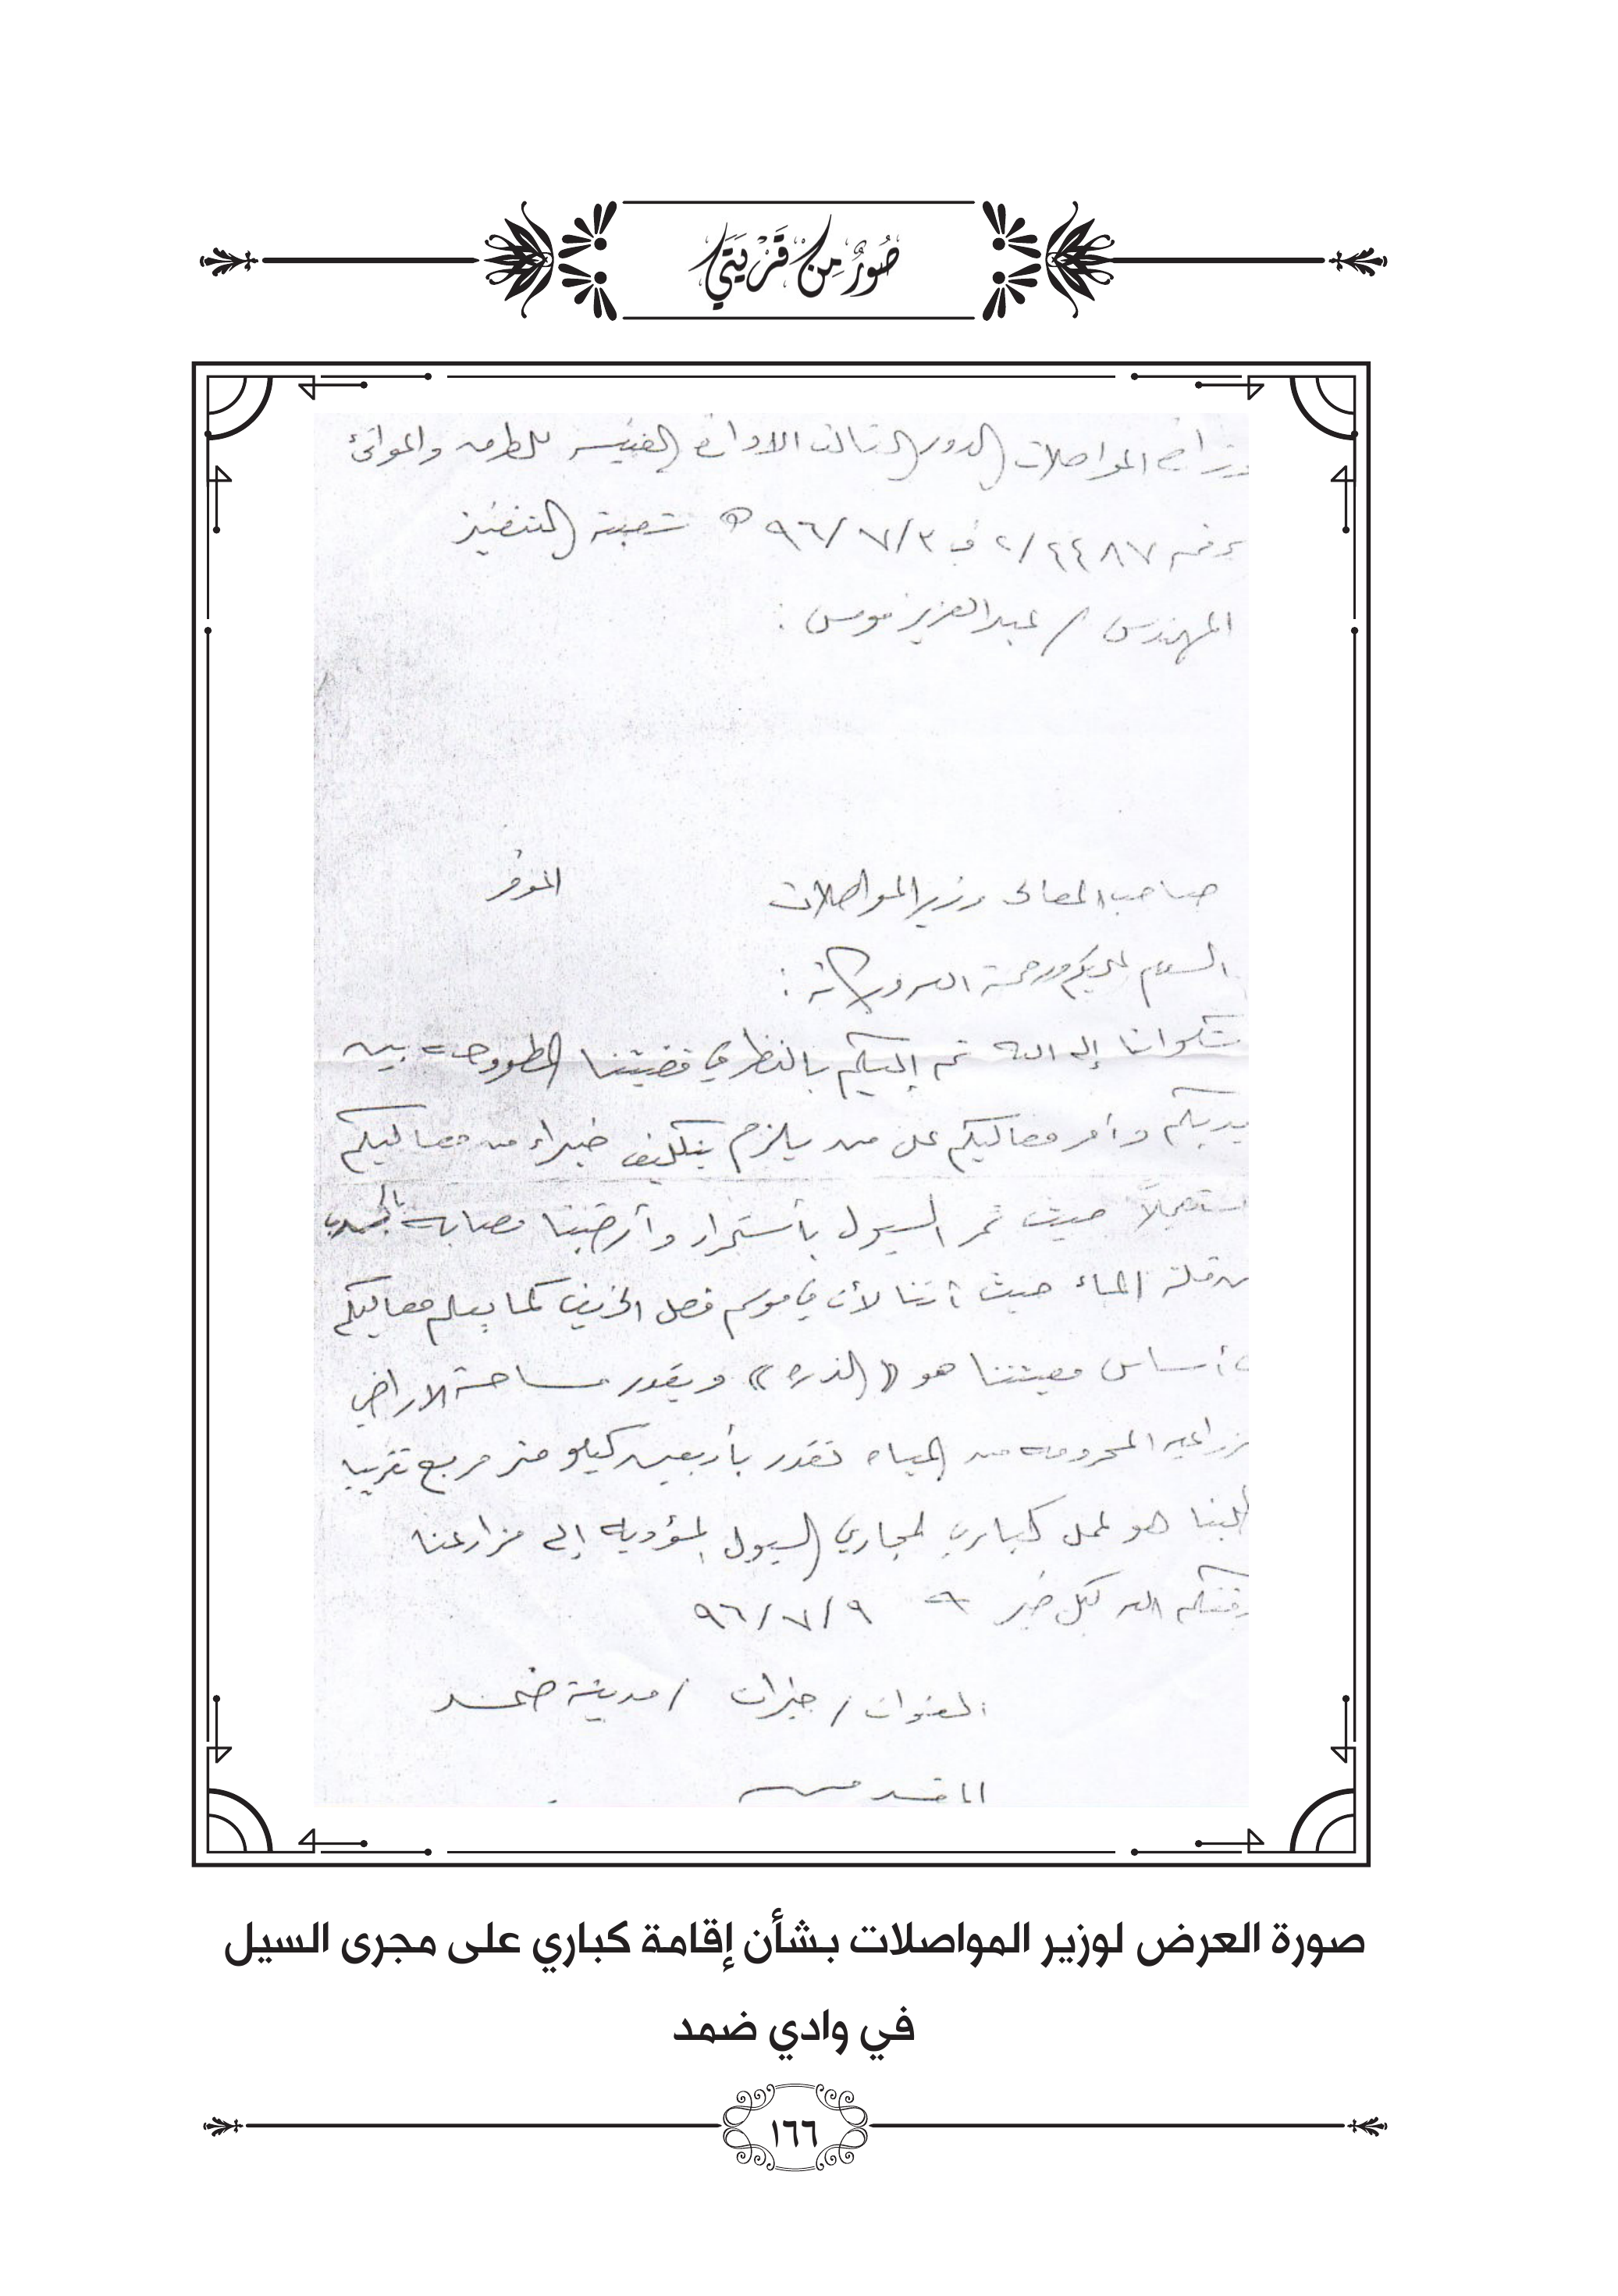 صُوَرٌ مِنْ قَرْيَتِي
وزارة المواصلات الدور الثالث الادارة الفنيه للطرق والموانئ
برقم ٢/٢٤٤٨٧ في ٩٦/٧/٣ شعبة التنفيذ
المهندس / عبدالعزيز موسى :
صاحب المعالي وزير المواصلات الموقر
السلام عليكم ورحمة الله وبركاته :
شكوانا إلى الله ثم إليكم بالنظر في قضيتنا المطروحه بين
يديكم وأمر معاليكم على من يلزم بتكليف خبراء من معاليكم
مستعجلاً حيث تمر السيول بأستمرار وأرضنا مصابه بالجدب
من قلة الماء حيث أننا لأن في موسم فصل الخريف كما يعلم معاليكم
أن أساس معيشتنا هو ((الذره)) ويقدر مساحة الاراضي
الزراعيه المحرومه من المياه تقدر بأربعين كيلو متر مربع تقريبا
طلبنا هو عمل كباري لمجاري السيول المؤديه إلى مزارعنا
وفقكم الله لكل خير ٩٦/٧/٩
العنوان / جيزان / مدينة ضمد
المقدم
صورة العرض لوزير المواصلات بشأن إقامة كباري على مجرى السيل
في وادي ضمد
١٦٦